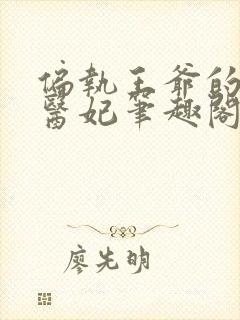 偏執王爺的
醫妃筆趣閣
廖先明